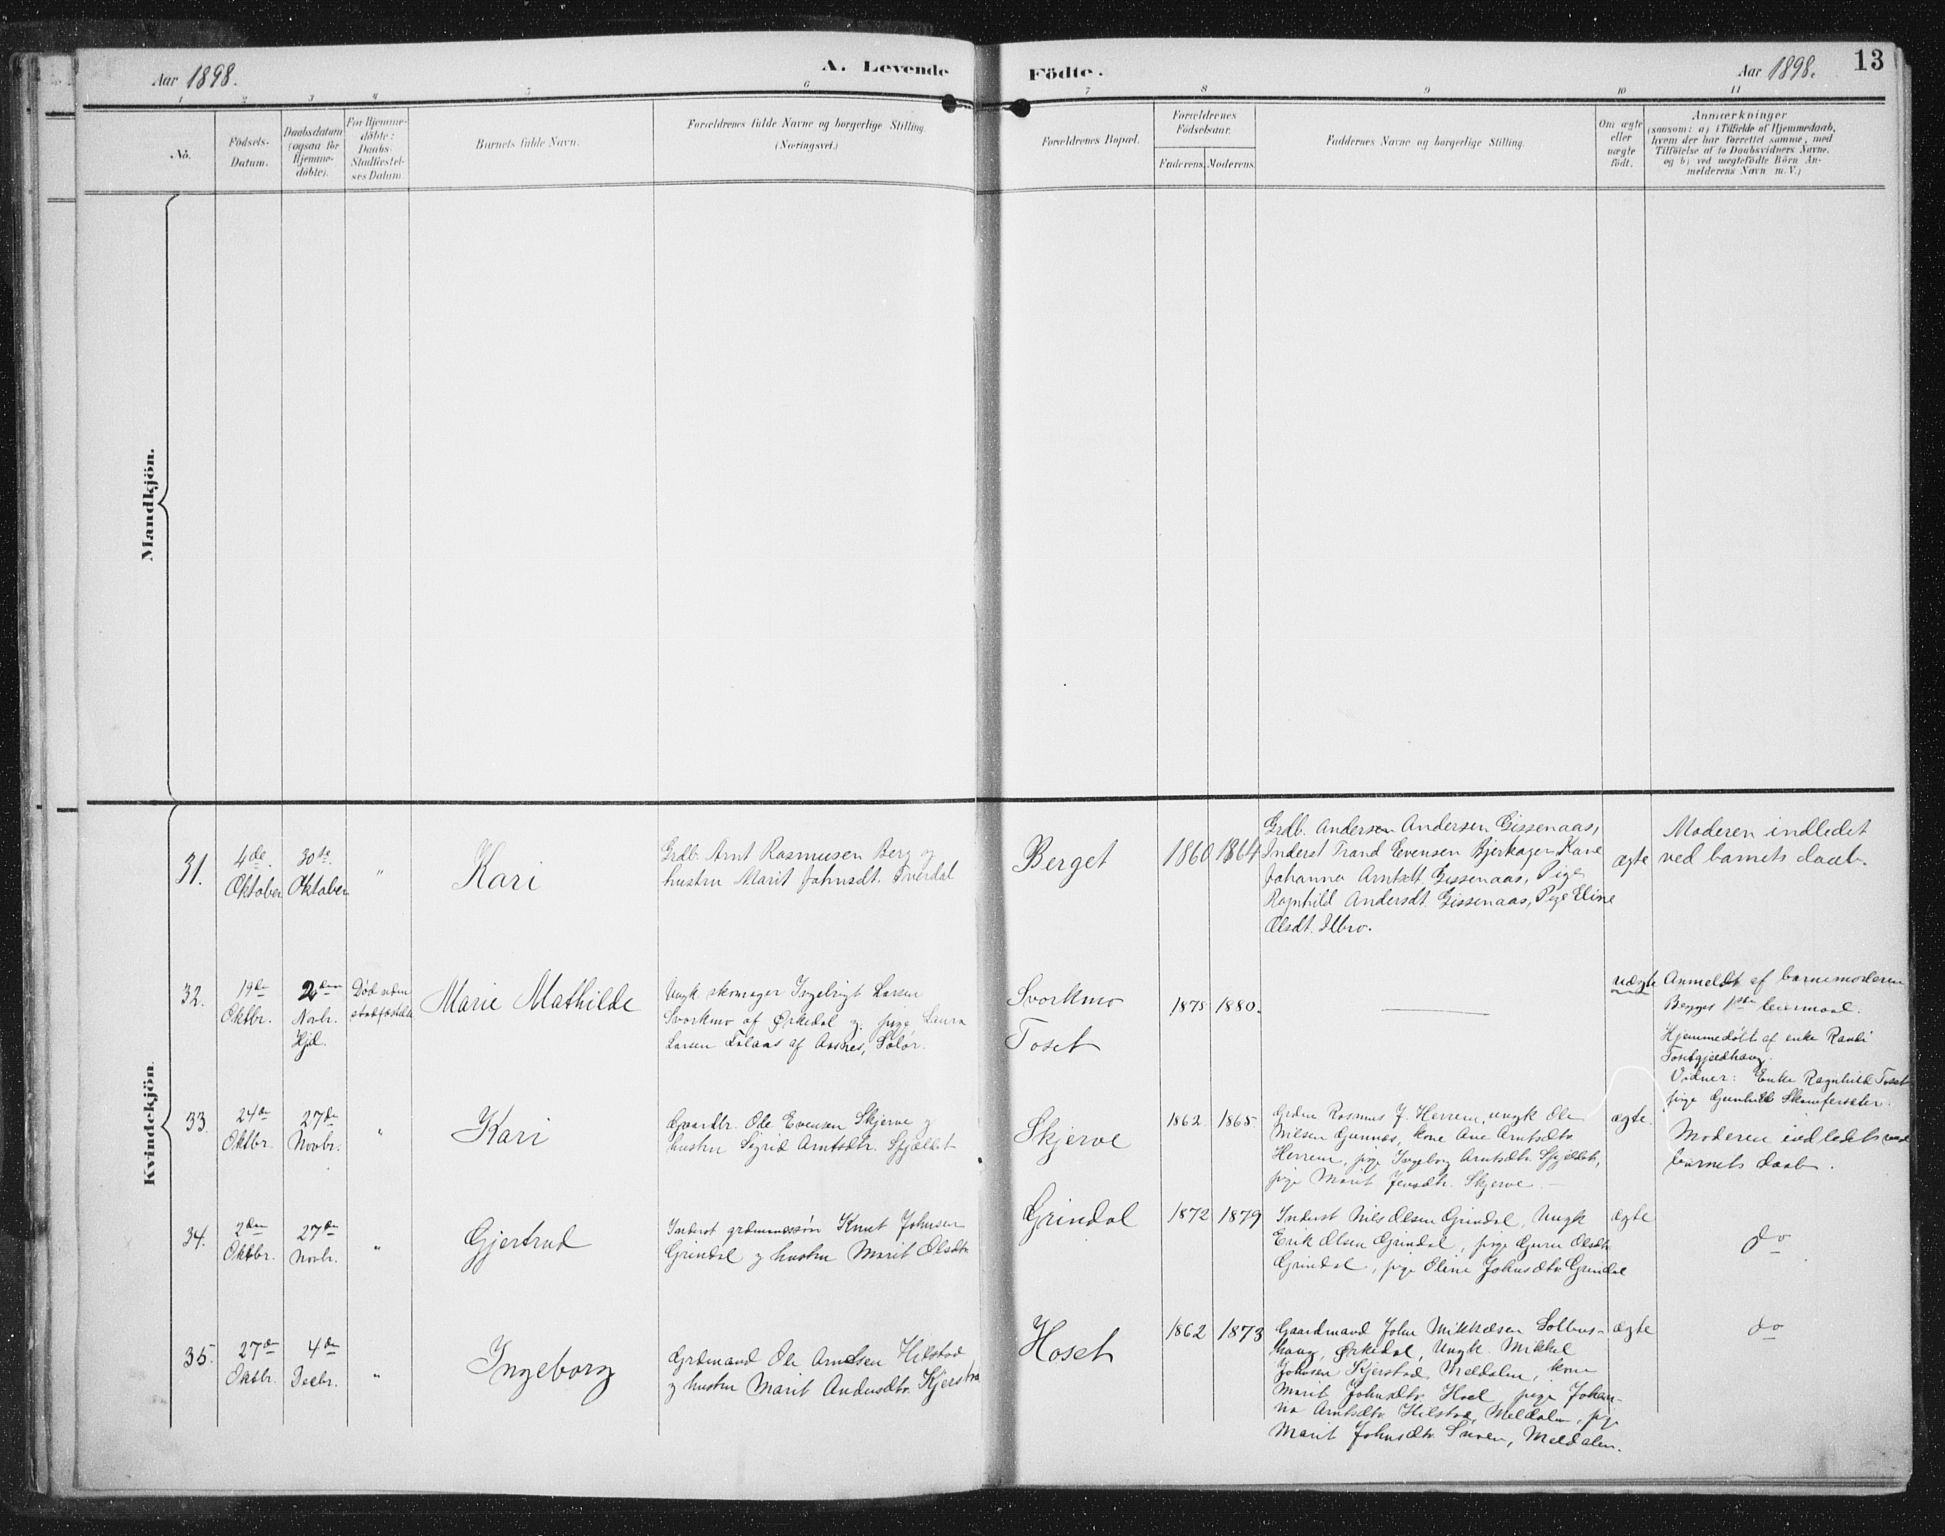 Aar 1898.
A. Levende
Födte.
Aar 1898.
13
1 2 3 4 5 6 7 8 9 10 11
No.
Födsels-
Datum.
Daabsdatum
(ogsaa for
Hjemme-
döbte).
For Hjemme-
döbte:
Daabs-
Stadfæstel-
ses Datum.
Barnets fulde Navn.
Forældrenes fulde Navne og borgerlige Stilling
(Næringsvei.)
Forældrenes Bopæl.
Forældrenes
Födselsaar.
Faderens.
Moderens.
Faddernes Navne og borgerlige Stilling.
Om ægte
eller
uægte
födt.
Anmærkninger
(saasom: a) i Tilfælde af Hjemmedaab,
hvem der har forrettet samme, med
Tilföielse af to Daabsvidners Navne,
og b) ved uegtefödte Börn An-
melderens Navn m. V.)
Mandkjön.
Kvindekjön.
31.
4de
Oktober
30te
Oktober
"
Kari
Grdb. Arnt Rasmusen Berg og
hustru Marit Johnsdt. Tverdal
Berget
1860
1864
Grdb. Andersen Andersen Gissenaas,
Inderst Trand Evensen Bjerkager, Kone
Johanna Arntsdt. Gissenaas, Pige
Ragnhild Andersdt. Gissenaas, Pige Eline
Olsdt. Ilbro.
ægte
Moderen indledet
ved barnets daab.
32.
19de
Oktbr.
2den
Novbr.
Hjd.
Død uden
stadfæstelse
Marie Mathilde
Ungk. skomager Ingebrigt Larsen
Svorkmo af Ørkedal og pige Laura
Larsen Folaas af Aasnes, Solør.
Svorkmo
Toset
1878
1880.
uægte
Anmeldt af barnemoderen
Begges 1ste leiermaal.
Hjemmedøbt af enke Randi
Tosetgjerdhaug.
Vidner: Enke Ragnhild Toset
pige Gunhild
33.
24de
Oktbr.
27de
Novbr.
"
Kari
Gaardbr. Ole Evensen Skjerve og
hustru Sigrid Arntsdtr. Skjøldet
Skjerve
1862
1865
Grdm. Rasmus J. Herrem, ungk Ole
Nilsen Gunnes, kone Ane Arntsdtr
Herrem, pige Ingeborg Arntsdtr
pige Marit Jensdtr. Skjerve
ægte.
Moderen indledet ved
barnets daab.
34.
2den
Oktbr.
27de
Novbr.
"
Gjertrud
Inderst grdmandssøn Knut Johnsen
Grindal og hustru Marit Olsdtr
Grindal
1872
1879
Inderst Nils Olsen Grindal, Ungk
Erik Olsen Grindal, pige Guru Olsdtr
Grindal, pige Oline Johnsdtr Grindal
ægte
do
35.
27de
Oktbr.
4de
Decbr.
"
Ingeborg
Grdmand Ole Arntsen Hilstad
og hustru Marit Andersdtr. Kjerstad
Hoset
1862
1873
Gaardmand John Mikkelsen Solbus-
haug, Ørkedal, Ungk. Mikkel
Johnsen Kjerstad, Meldalen, kone
Marit Johnsdtr Hoel, pige Johan-
na Arntsdtr Hilstad, Meldalen, pige
Marit Johnsdtr Snoen, Meldalen.
ægte
do